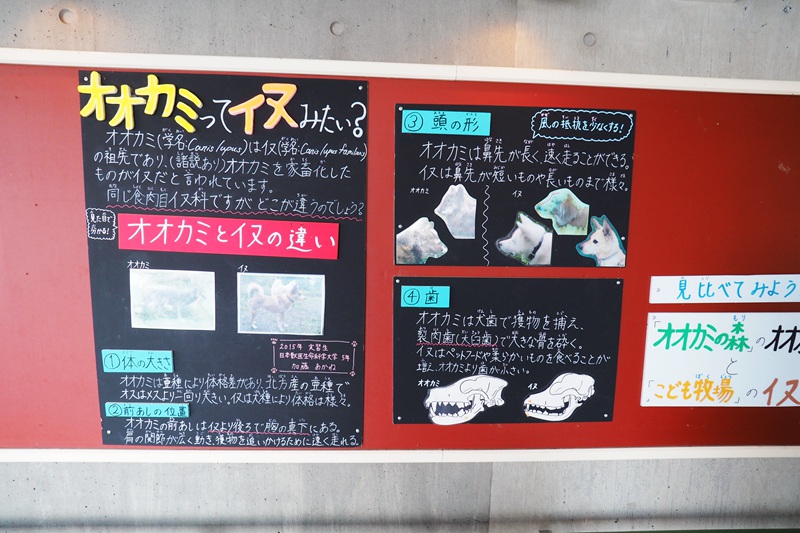 オオカミってイヌみたい?
オオカミ(学名:Canis lupus)はイヌ(学名:Canis lupus familiaris)
の祖先であり、(諸説あり)オオカミを家畜化した
ものがイヌだと言われています。
同じ食肉目イヌ科ですが どこが違うのでしょう?
見た目で
分かる!
オオカミとイヌの違い
オオカミ
イヌ
2015年 実習生
日本獣医生命科学大学 5年
加藤 あかね
①体の大きさ
オオカミは亜種により体格差があり、北方産の亜種で
オスはメスより一回り大きい。イヌは犬種により体格は様々。
②前あしの位置
オオカミの前あしは イヌより後ろで胸の真下にある。
肩の関節が広く動き、獲物を追いかけるために速く走れる。
③ 頭の形
風の抵抗を少なくする!
オオカミは鼻先が長く、速く走ることができる。
イヌは鼻先が短いものや長いものまで様々。
オオカミ
イヌ
④ 歯
オオカミは犬歯で獲物を捕え、
裂肉歯(大臼歯)で大きな骨を砕く。
イヌはペットフードや柔らかいものを食べることが
増え、オオカミより歯が小さい。
オオカミ
イヌ
見比べてみよう
「オオカミの森」のオオ
と
「こども牧場」のイヌ